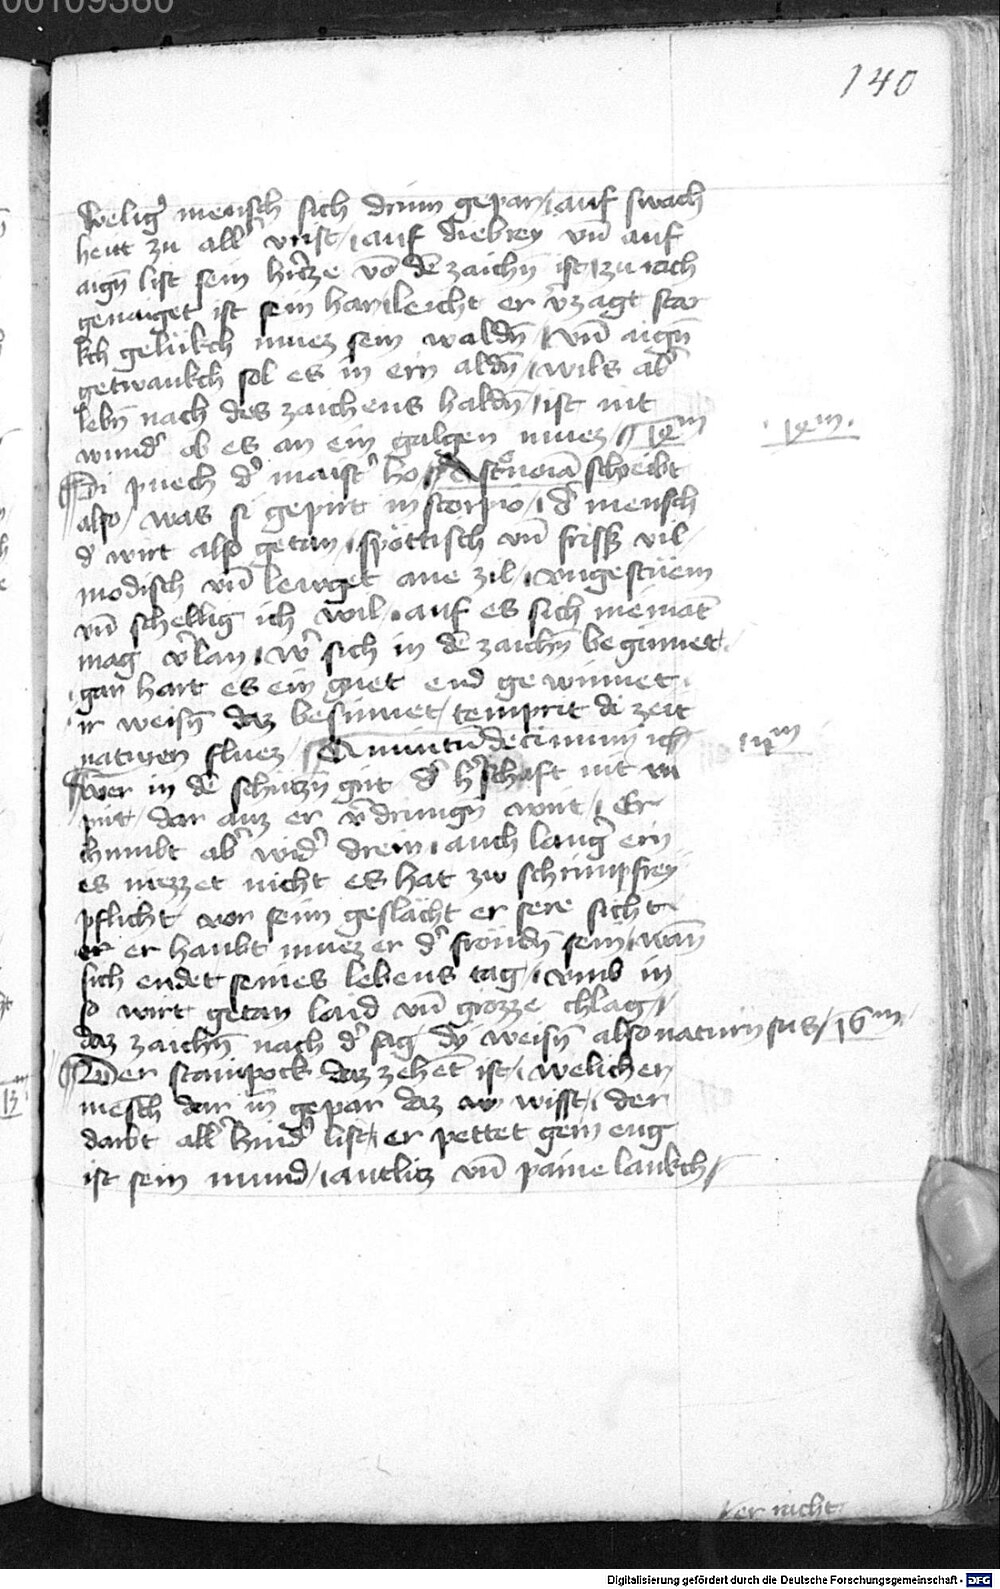 00109380
140
Welig' mensch sich drinn gepar / auf swach
heit zu all' vrist / auf diebrey vn̄ auf
aign̄ list sein hercze vō dē zaichn̄ ist / zu rach
genaiget ist sein har / leicht er v'zagt star
kch gelükch muez sein waldn̄ / vn̄ aign̄
getwankch sol es in ern aldn̄ / wils ab'
lebn̄ nach des zaichens haldn̄ / ist nit
wund' ob es an ein galgen muez // 14m
14m.
Di puech d' maist' ho astronomā schreibt
also / was si gepirt in scorpio / d' mensch
d' wirt also getan / spöttisch vn̄ frisss vil
modisch vn̄ lewget ane zil / vngestüem
vn̄ schellig ich wil / auf es sich niemāt
mag v'lan / w' sich in dē zaichn̄ beginnet
gar hart es ein guet end gewinnet
ir weisn̄ daz besinnet / temprit di zeit
naturen fluez / Quintūdecimum ich
15m
Wer in dē schutzn̄ gūt d' h'schaft nit vn
pirt / dar auz er v'drungn̄ wirt / Er
chumbt ab' wid' drein / auch lang' ern
es mezzet nicht es hat zw schimpfrey
pflicht / vor seim geslächt er sere sicht
er haubt muez er d' freündn̄ sein / wan̄
sich endet seines lebens tag / vmb in
so wirt getan laid vn̄ grozze chlag /
daz zaichn̄ nach d' sag dy weisn̄ also naturn sus / 16m
Der stainpock daz zehēt ist / welicher
mēsch dar in gepar daz wisst / der
darbt all' kind' list / er pettet gern eng
ist sein mund / antlitz vn̄ paine lankch /
13
er nicht
Digitalisierung gefördert durch die Deutsche Forschungsgemeinschaft - DFG